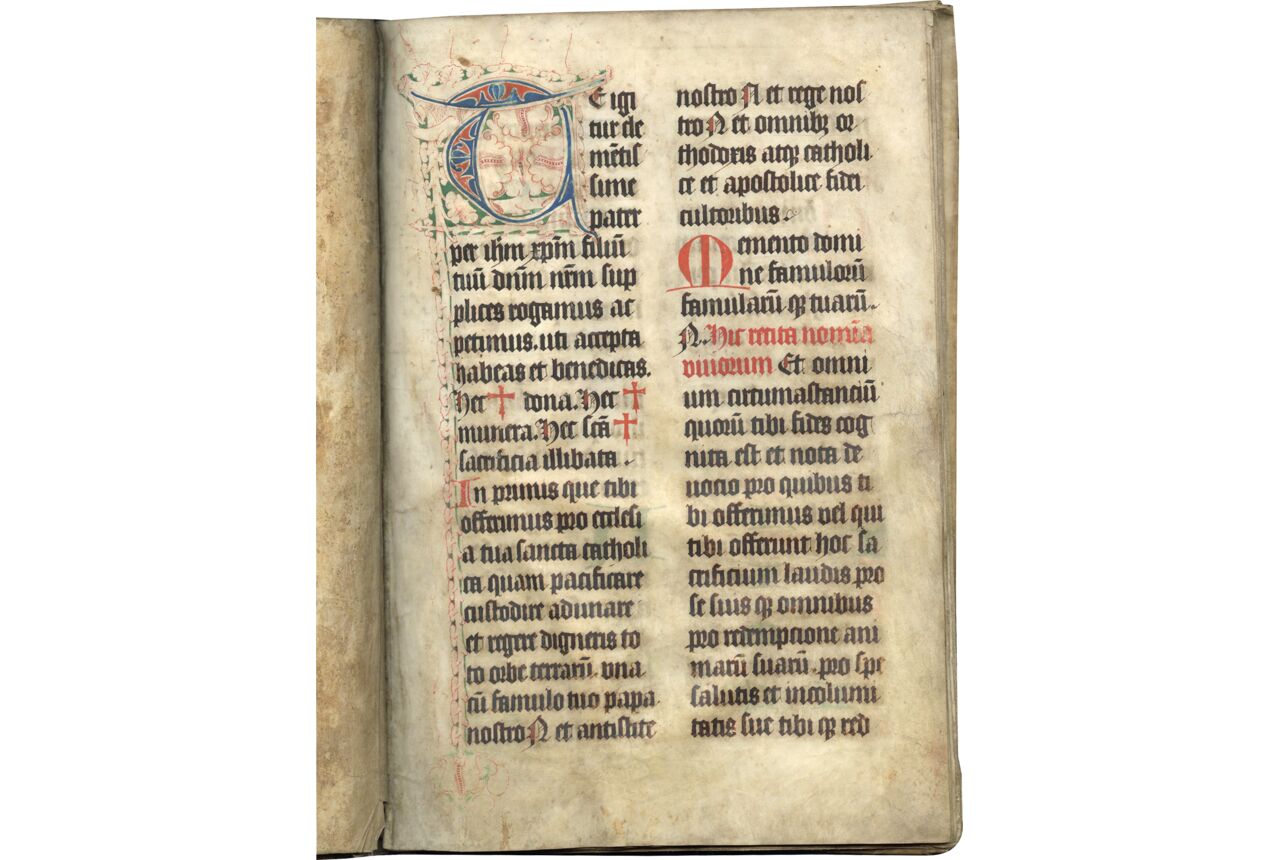 TE igi
tur cle
mētis
sime
pater
per ihm̄ xp̄m filiū
tuū dn̄m nr̄m sup
plices rogamus ac
petimus. uti accepta
habeas et benedicas.
Hec ✝ dona. Hec ✝
munera. Hec sc̄a ✝
sacrificia illibata.
In primis que tibi
offerimus pro ecclesi
a tua sancta catholi
ca quam pacificare
custodire adunare
et regere digneris to
to orbe terrarū. vna
cū famulo tuo papa
nostro N et antistite
nostro N et rege nos
tro N et omnibꝫ or
thodoxis atqꝫ catholi
ce et apostolice fidei
cultoribus.
Memento domi
ne famulorū
famularū qꝫ tuarū.
N. Hic recita nomīa
viuorum Et omni
um circumastanciū
quorū tibi fides cog
nita est et nota de
uocio pro quibus ti
bi offerimus vel qui
tibi offerunt hoc sa
crificium laudis pro
se suis qꝫ omnibus
pro redempcione ani
marū suarū. pro spe
salutis et incolumi
tatis sue tibi qꝫ red